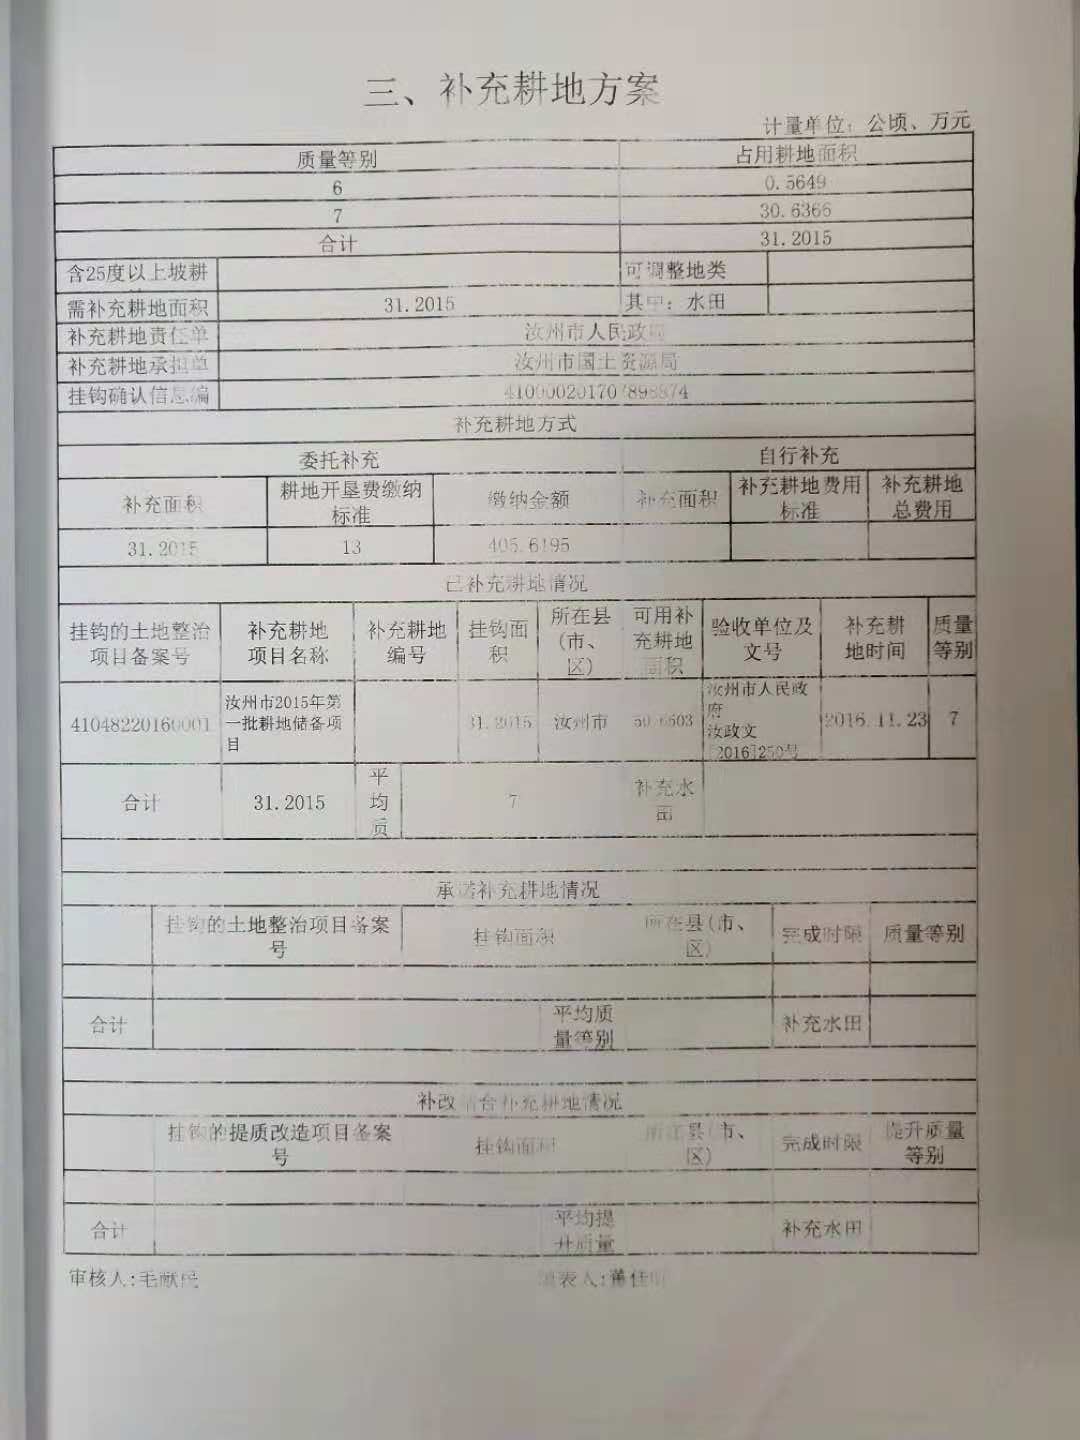 三、补充耕地方案
计量单位：公顷、万元
质量等别 占用耕地面积
6 0.5649
7 30.6366
合计 31.2015
含25度以上坡耕 可调整地类
需补充耕地面积 31.2015 其中：水田
补充耕地责任单 汝州市人民政府
补充耕地承担单 汝州市国土资源局
挂钩确认信息编
补充耕地方式
委托补充 自行补充
补充面积 耕地开垦费缴纳标准 缴纳金额 补充面积 补充耕地费用标准 补充耕地总费用
31.2015 13 405.6195
已补充耕地情况
挂钩的土地整治项目备案号 补充耕地项目名称 补充耕地编号 挂钩面积 所在县(市、区) 可用补充耕地面积 验收单位及文号 补充耕地时间 质量等别
41048220160001 汝州市2015年第一批耕地储备项目 31.2015 汝州市 50.6503 汝州市人民政府汝政文[2016]250号 2016.11.23 7
合计 31.2015 平均质 7 补充水田
承诺补充耕地情况
挂钩的土地整治项目备案号 挂钩面积 所在县(市、区) 完成时限 质量等别
合计 平均质量等别 补充水田
补改结合补充耕地情况
挂钩的提质改造项目备案号 挂钩面积 所在县(市、区) 完成时限 提升质量等别
合计 平均提升质量 补充水田
审核人:毛献 填表人:董佳